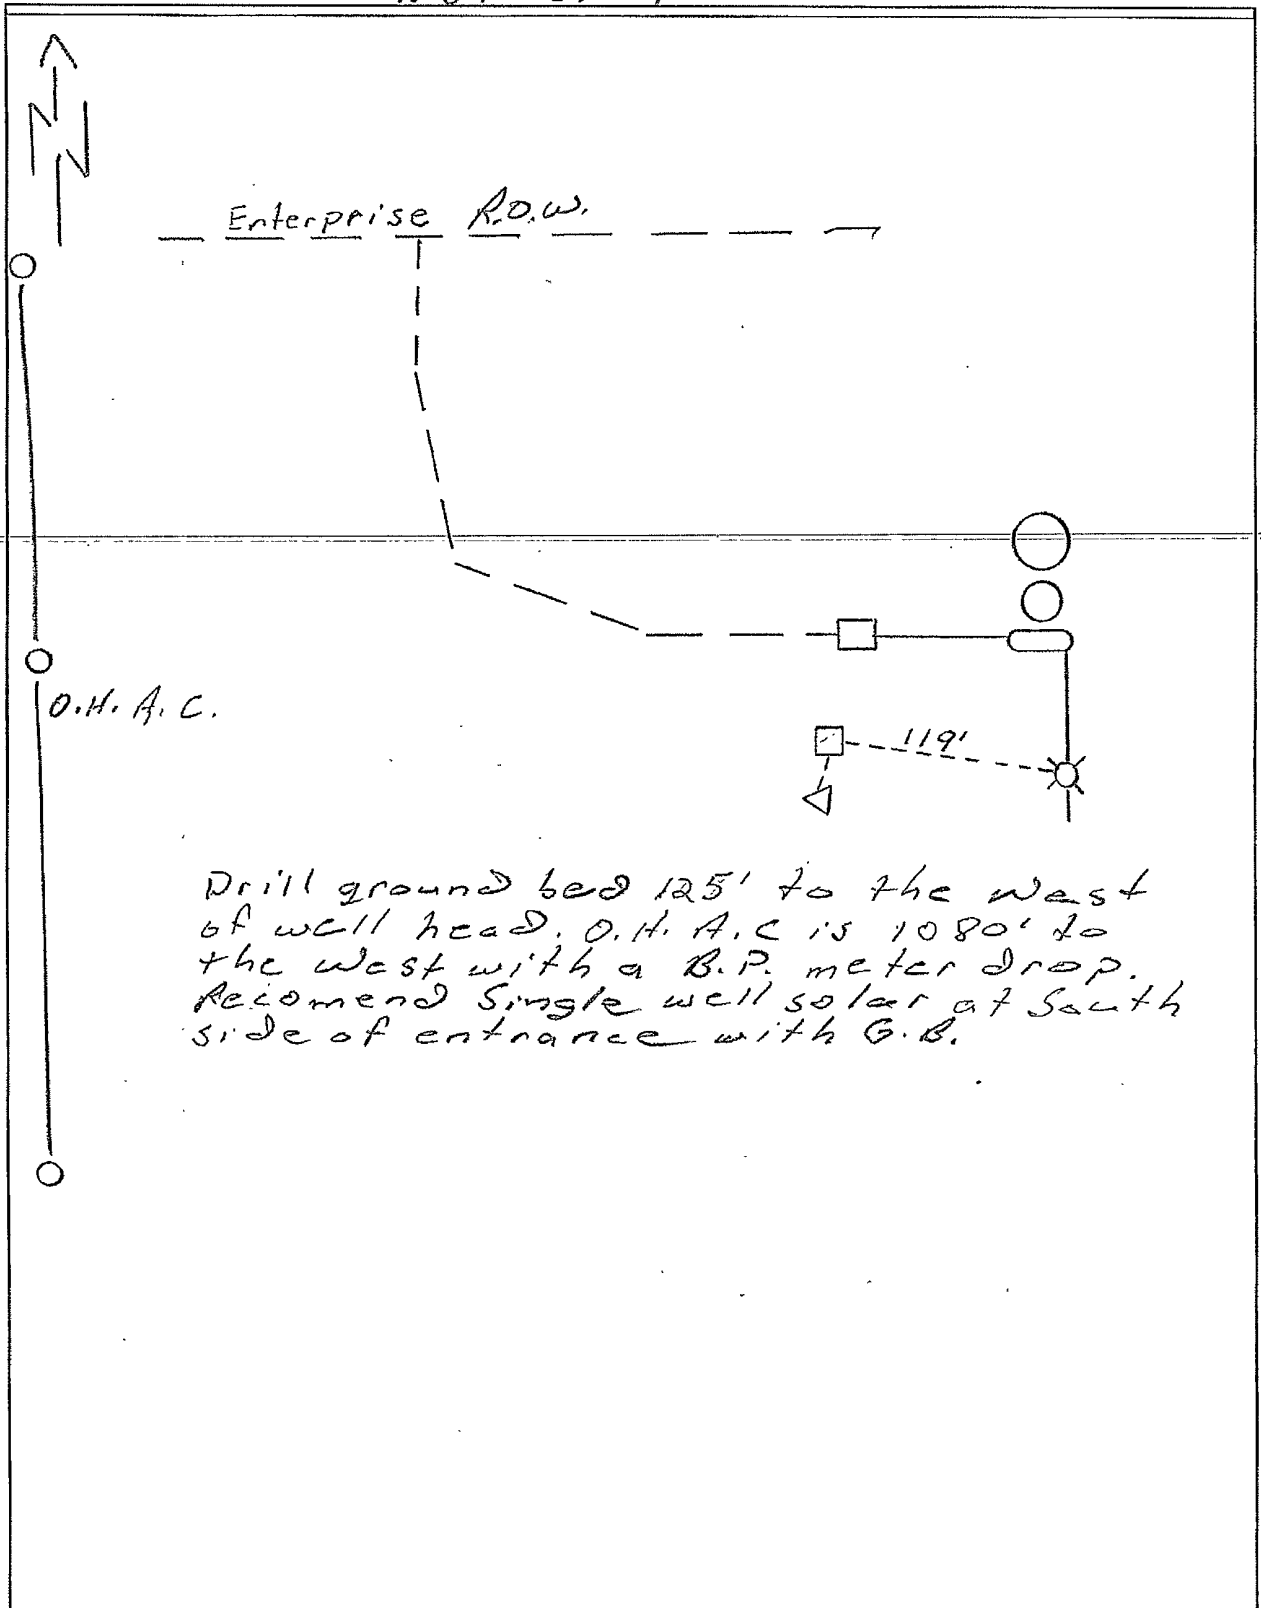 Enterprise R.O.W.
O.H. A.C.
119'
Drill ground bed 125' to the West
of well head. O.H. A.C is 1080' to
the West with a B.P. meter drop.
Recomend Single well solar at South
side of entrance with G.B.